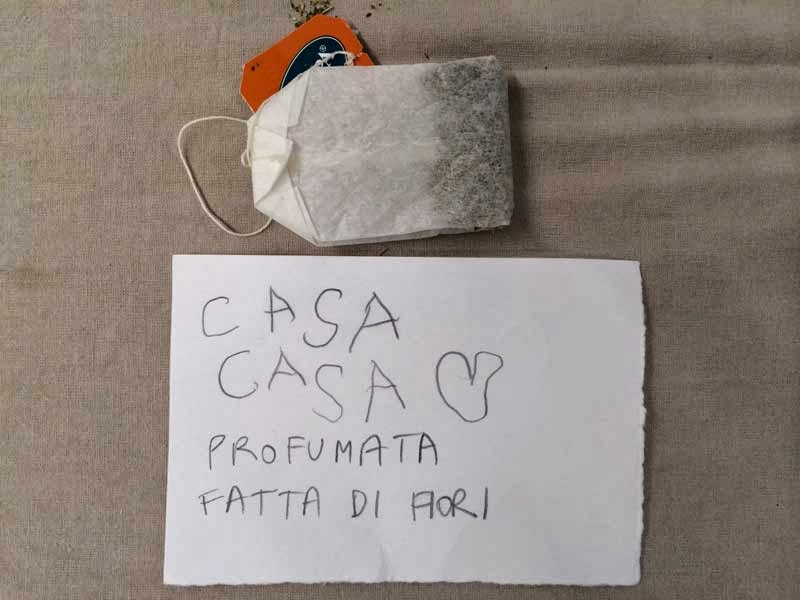 CASA
CASA
PROFUMATA
FATTA DI FIORI